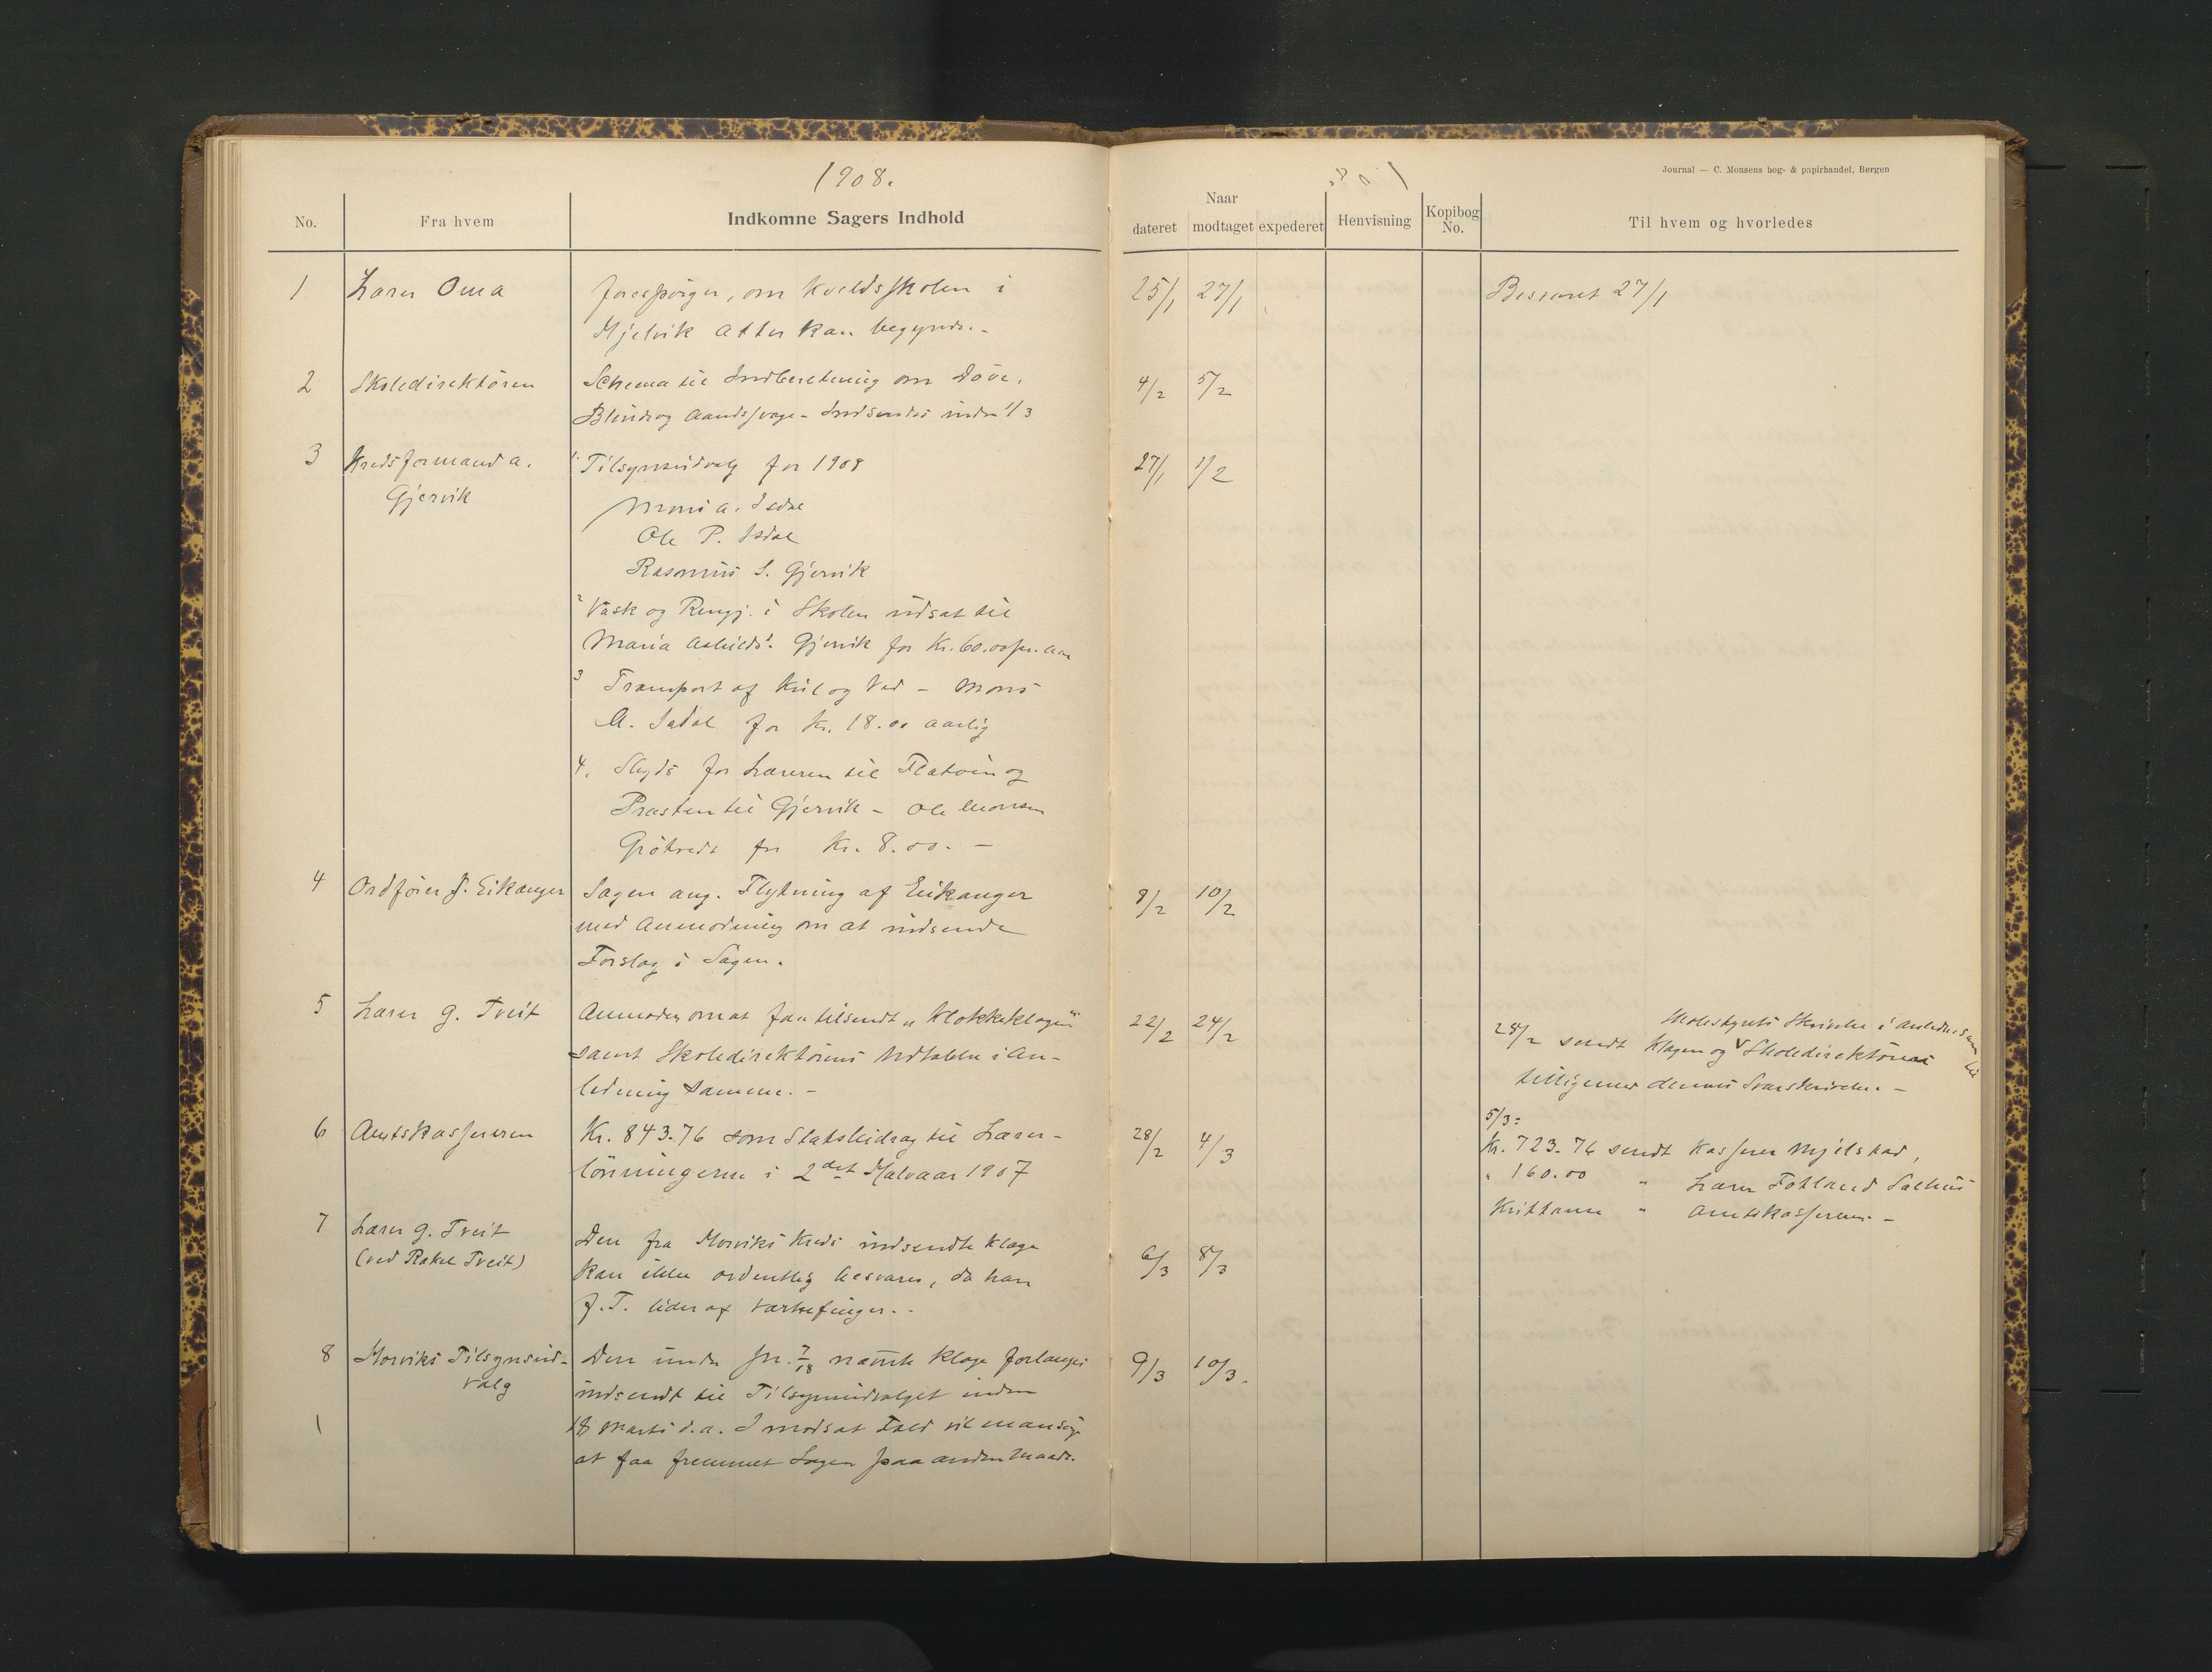 1908.
Journal — C. Monsens bog- & papirhandel, Bergen
No.
Fra hvem
Indkomne Sagers Indhold
Naar
dateret
modtaget
expederet
Henvisning
Kopibog No.
Til hvem og hvorledes
1 Lærer Oma forespörger, om Kveldsskolen i 25/1 27/1 Besvaret 27/1
Hjelvik atter kan begynde. -
2 Skoledirektören Schema til Indberetning om Döve, 4/2 5/2
Blinde og Aandssvage - Indsendes inden 1/3
3 Kredsformand A. 1. Tilsynsudvalg for 1908 27/1 1/2
Gjervik
Mons A. Isdal
Ole P. Isdal
Rasmus S. Gjervik
2 Vask og Rengj. i Skolen udsat til
Maria Gjervik for Kr. 60.00 pr. Aar
3 Transport af Kul og Ved - Mons
A. Isdal for Kr. 18.00 aarlig
4. Skyds for Læreren til Flatöen og
Præsten til Gjervik - Ole Monsen
for Kr. 8.00. -
4 Ordförer J. Eikanger Sagen ang. Flytning af Eikanger 8/2 10/2
med Anmodning om at indsende
Forslag i Sagen.
5 Lærer G. Tveit Anmoder om at faa tilsendt "Klokkeklagen" 22/2 24/2
samt Skoledirektörens Udtalelse i An-
ledning samme. -
Skolestyrets Skrivelse i Anledn. sam til
28/2 sendt Klagen og V Skoledirektören
tilligemed dennes Svarskrivelse. -
6 Amtskassereren Kr. 843.76 som Statsbidrag til Lærer- 28/2 4/3
lönningerne i 2det Halvaar 1907
5/3:
Kr. 723.76 sendt Kasserer Mjelstad,
" 160.00 " Lærer Fotland Salhus
" Amtskassereren. -
7 Lærer G. Tveit
(ved Rakel Tveit)
Den fra Horviks Kreds indsendte Klage 6/3 8/3
kan ikke ordentlig besvares, da han
G. T. lider af Værkefinger. -
8 Horviks Tilsynsud- Den under nævnte Klage forlanges 9/3 10/3.
valg
indsendt til Tilsynsudvalget inden
18 Marts d.a. I modsat Fald vil man söge
at faa fremmet Sagen paa anden Maade.